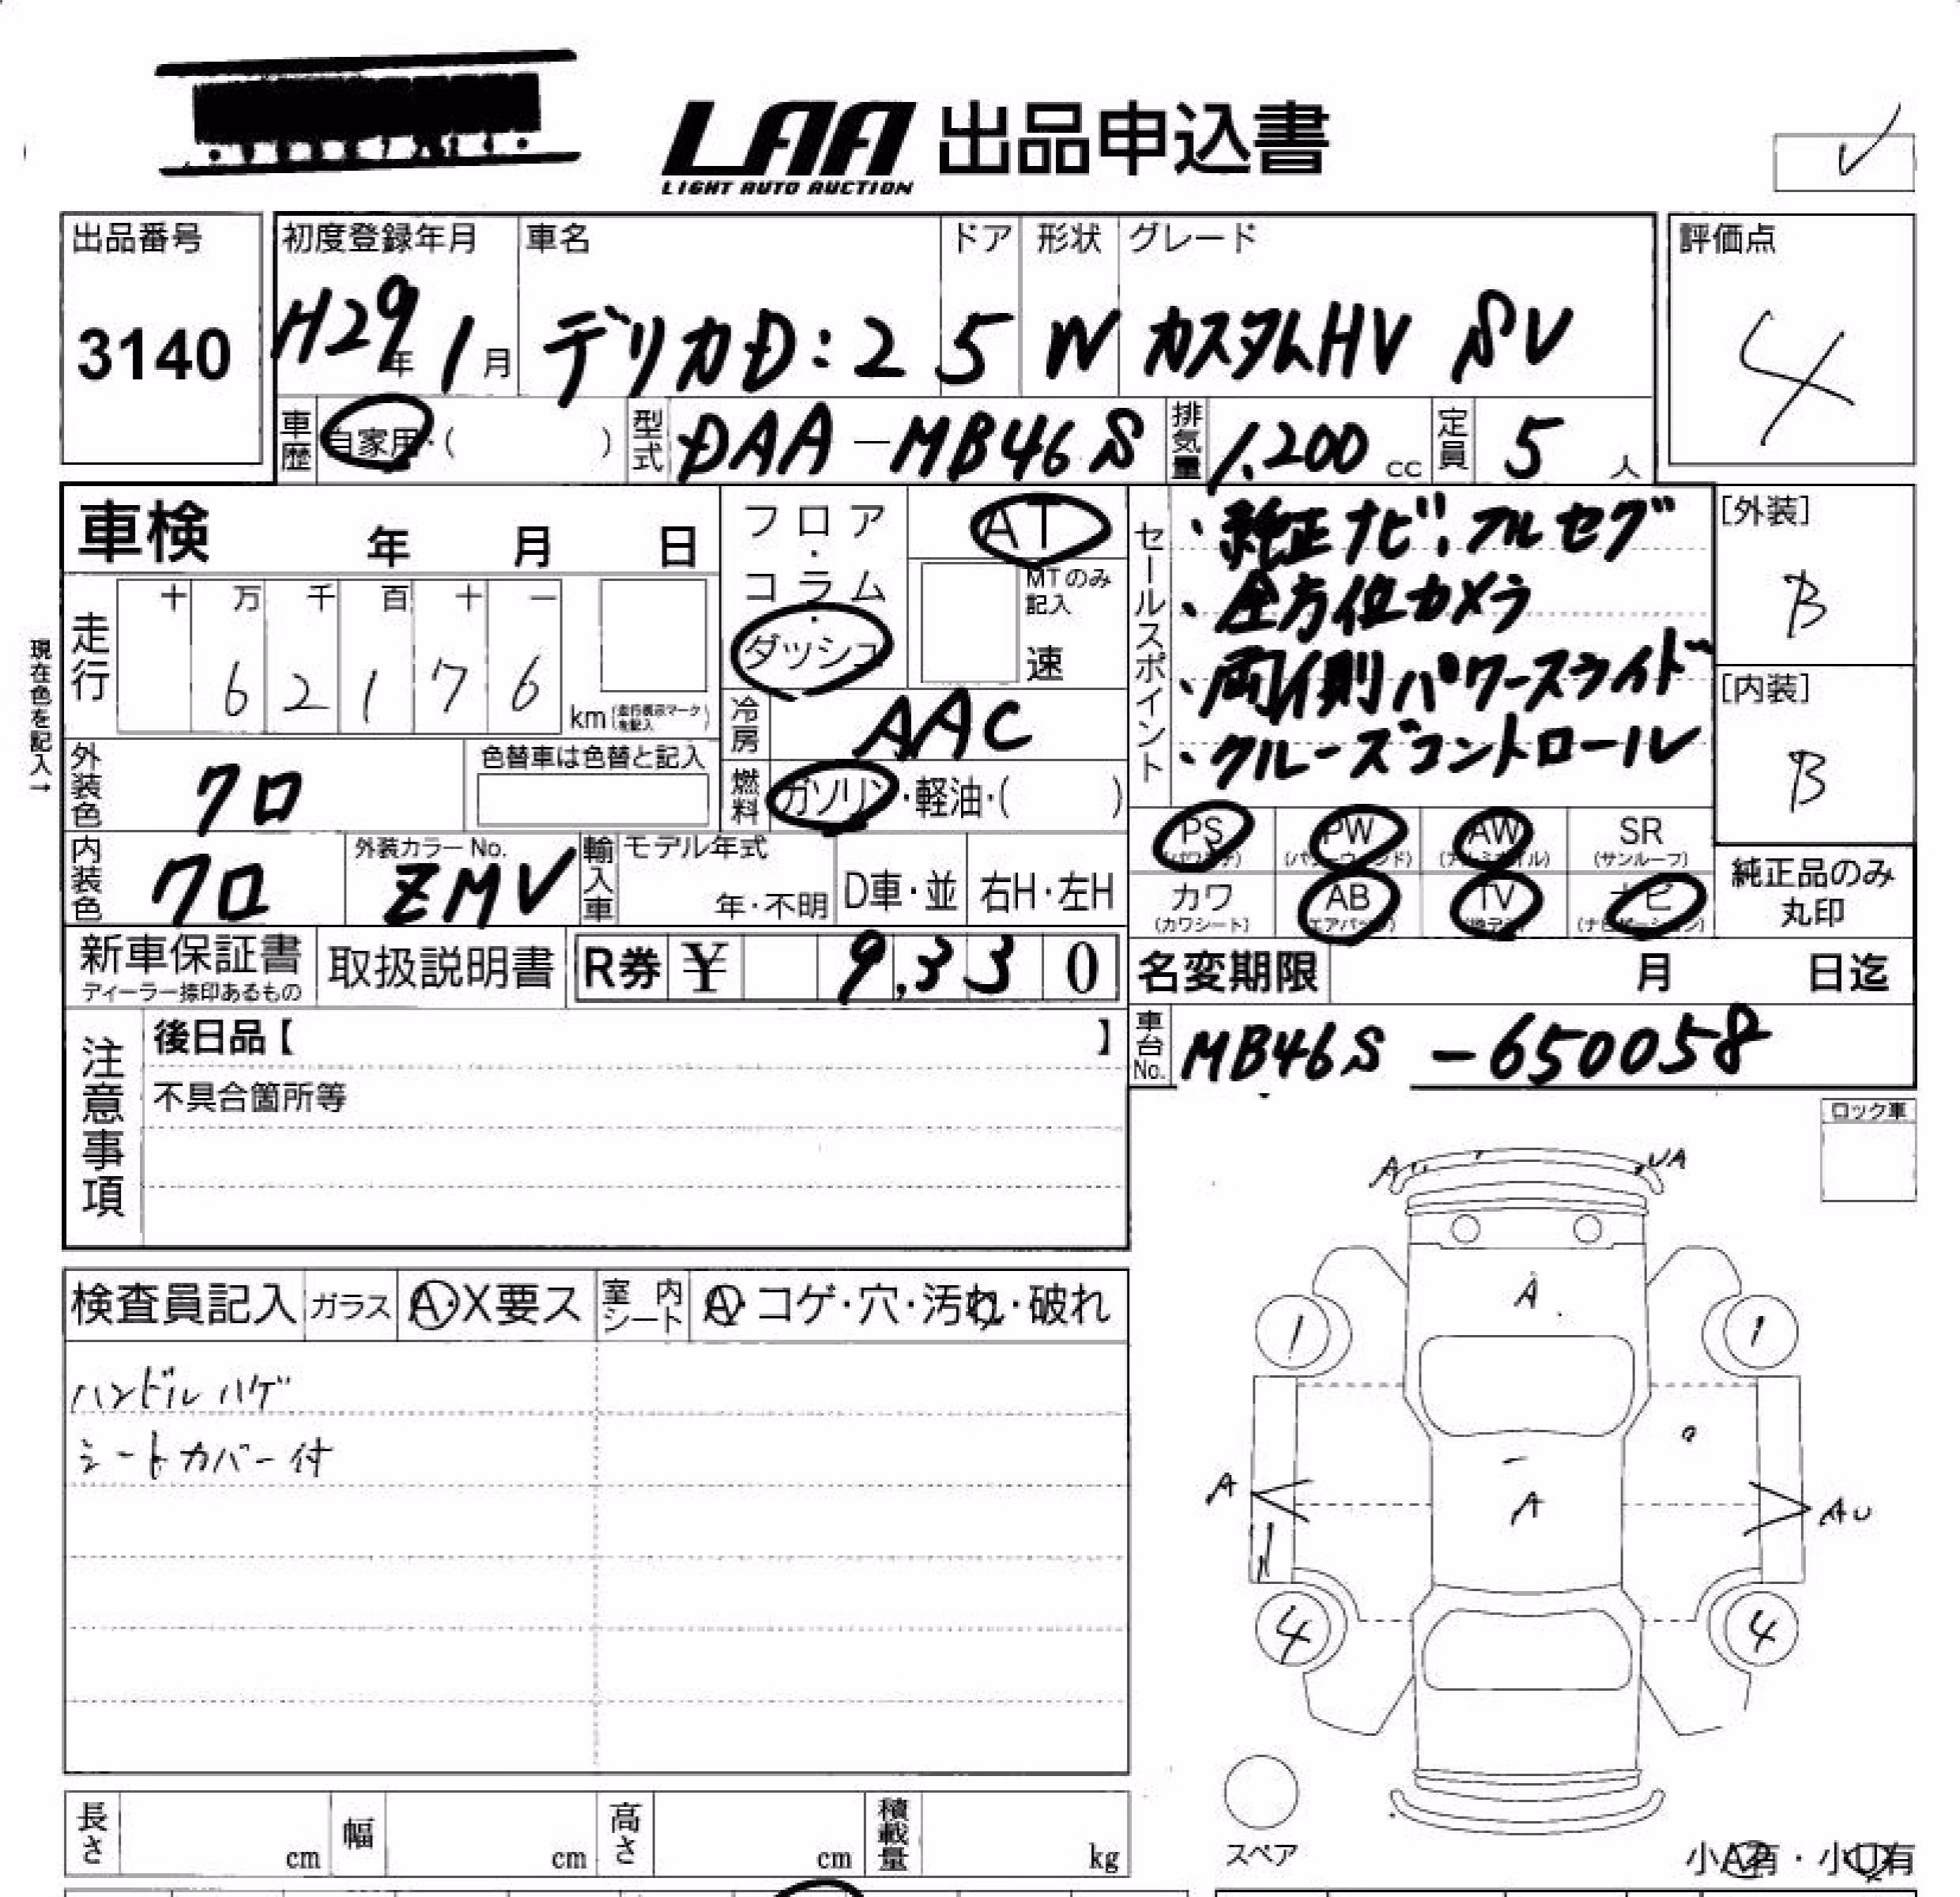 LAA 出品申込書
LIGHT AUTO AUCTION
出品番号
3140
初度登録年月
H29年 1月
車名
デリカD:2
ドア
5
形状
W
グレード
カスタムHV SV
評価点
4
車歴 自家用・( )
型式 DAA-MB46S
排気量 1,200 cc
定員 5 人
車検 年 月 日
現在色を記入→
走行
十 万 千 百 十 一
6 2 1 7 6
km(走行表示マークを記入)
フロア・コラム・ダッシュ
AT
MTのみ記入
速
冷房 AAC
燃料 ガソリン・軽油・( )
セールスポイント
・純正ナビ、フルセグ
・全方位カメラ
・両側パワースライド
・クルーズコントロール
[外装]
B
[内装]
B
外装色 クロ
色替車は色替と記入
内装色 クロ
外装カラーNo.
ZMV
輸入車
モデル年式
年・不明
D車・並
右H・左H
PS
PW
AW
(アルミホイル)
SR
(サンルーフ)
カワ
(カワシート)
AB
(エアバッグ)
TV
ナビ
(ナビゲーション)
純正品のみ
丸印
新車保証書
ディーラー捺印あるもの
取扱説明書
R券 ¥ 9,330
名変期限 月 日迄
車台No. MB46S -650058
注意事項
後日品【 】
不具合箇所等
ロック車
検査員記入
ガラス A・X要ス
室内シート A・コゲ・穴・汚れ・破れ
ハンドルハゲ
シートカバー付
A
UA
A
1
1
A
A
AU
4
4
スペア
小A有・小U有
長さ cm
幅 cm
高さ cm
積載量 kg